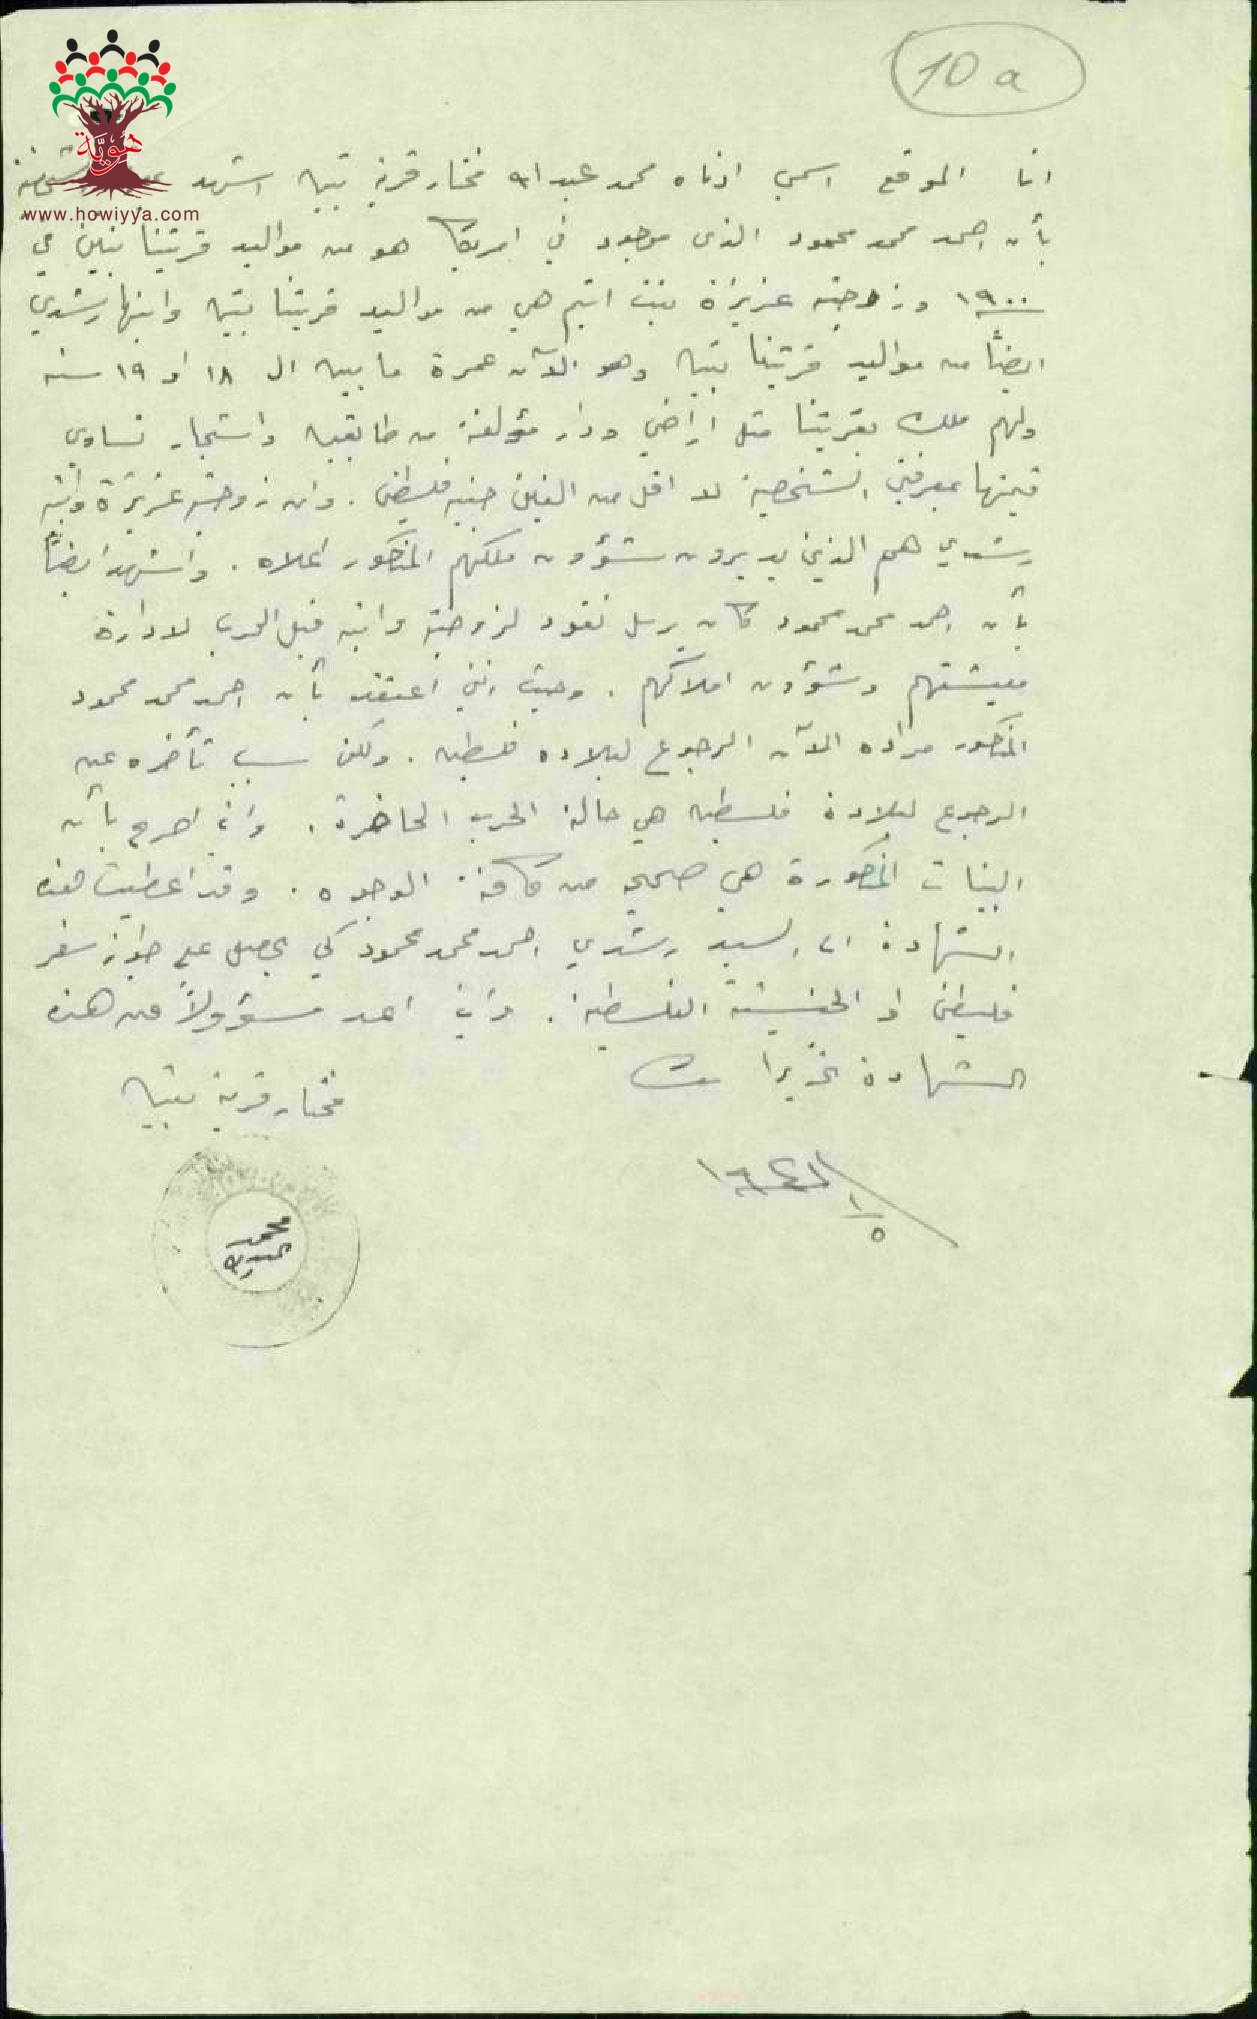 10 a
هوية
www.howiyya.com
انا الموقع اسمي ادناه محمد عبدالله مختار قرية بتين اشهد
بأن احمد محمد محمود الذى موجود في امريكا هو من مواليد قريتنا بتين في
١٩٠٠ وزوجته عزيزة بنت هي من مواليد قريتنا بتين وابنها رشدي
ايضاً من مواليد قريتنا بتين وهو الآن عمرة ما بين ال ١٨ او ١٩ سنه
ولهم ملك بقريتنا مثل اراضي ودار مؤلفة من طابقين واشجار تساوي
قيمتها بمعرفتي الشخصية لا اقل من الفين جنيه فلسطيني . وان زوجته عزيزة وابنه
رشدي هم الذين يديرون شؤون ملكهم المذكور اعلاه . واشهد ايضاً
بأن احمد محمد محمود كان يرسل نقود لزوجته وابنه قبل الحرب لادارة
معيشتهم وشؤون املاكهم . وحيث انني اعتقد بأن احمد محمد محمود
المذكور مراده الآن الرجوع لبلاده فلسطين . ولكن سبب تأخره عن
الرجوع لبلادة فلسطين هي حالة الحرب الحاضرة . واني اصرح بأن
البينات المذكورة هي صحيحه من كافة الوجوه . وقد اعطيت هذه
الشهادة الى السيد رشدي احمد محمد محمود كي يحصل على جواز سفر
فلسطيني او الجنسية الفلسطينية . واني اعد مسؤولاً عن هذه
الشهادة تحريرا
مختار قرية بتين
محمد
عبدالله